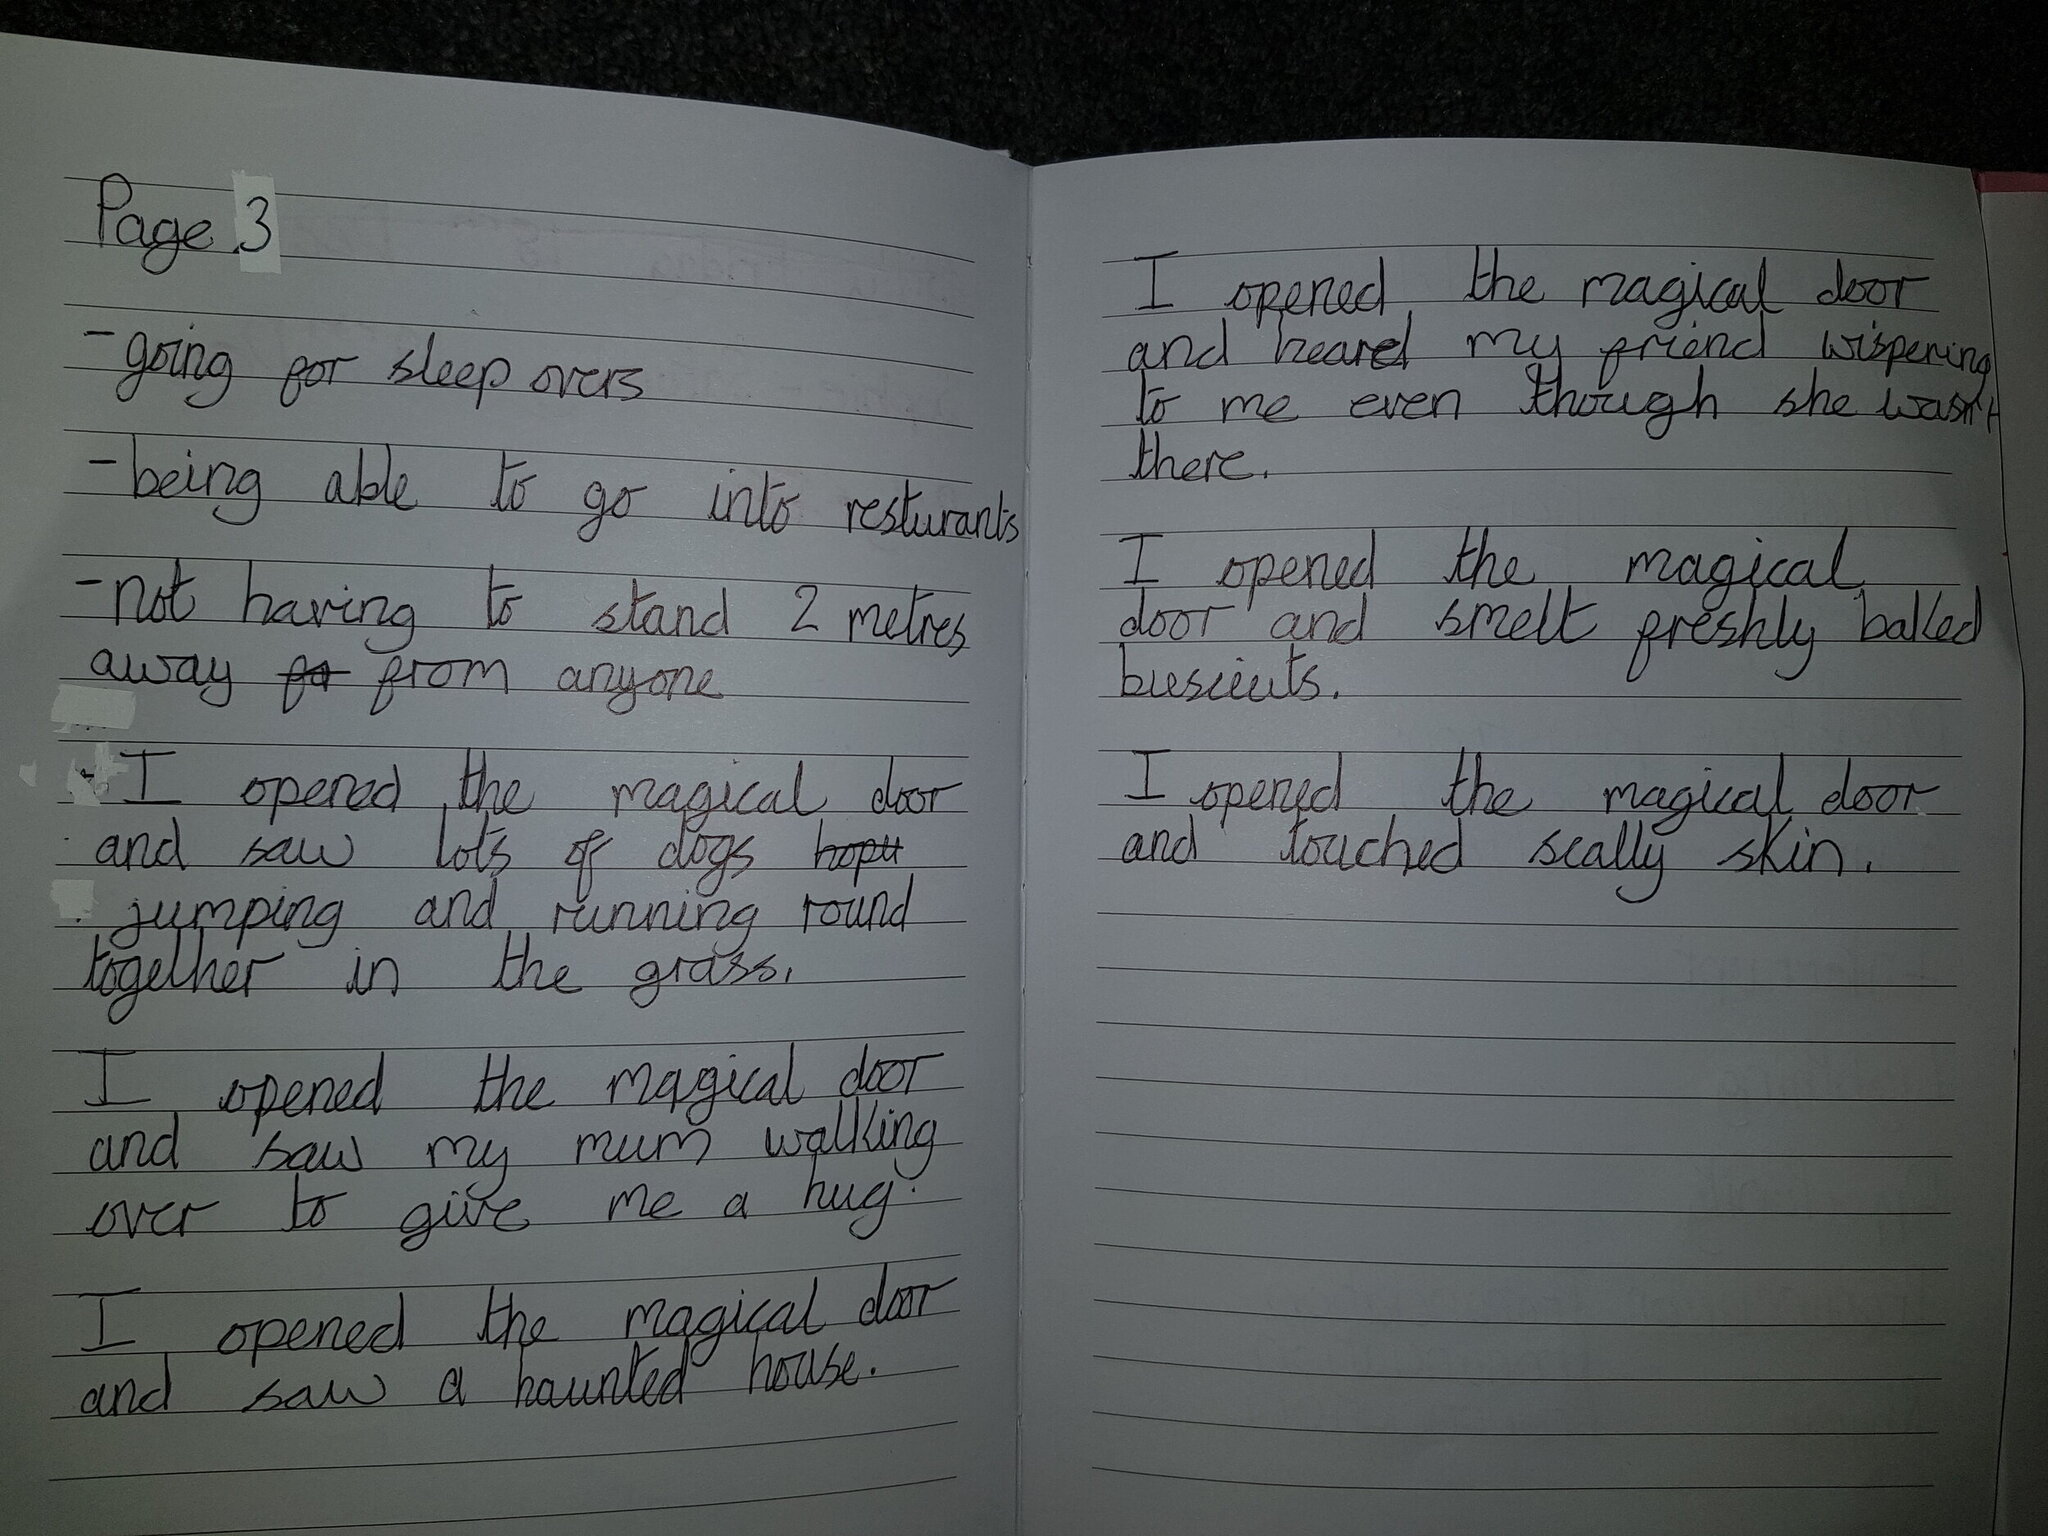 Page 3
- going for sleep overs
- being able to go into resturants
- not having to stand 2 metres
away from anyone
I opened the magical door
and saw lots of dogs
jumping and running round
together in the grass.
I opened the magical door
and saw my mum walking
over to give me a hug.
I opened the magical door
and saw a haunted house.
I opened the magical door
and heared my friend wispering
to me even though she wasn't
there.
I opened the magical
door and smelt freshly baked
I opened the magical door
and touched scally skin.